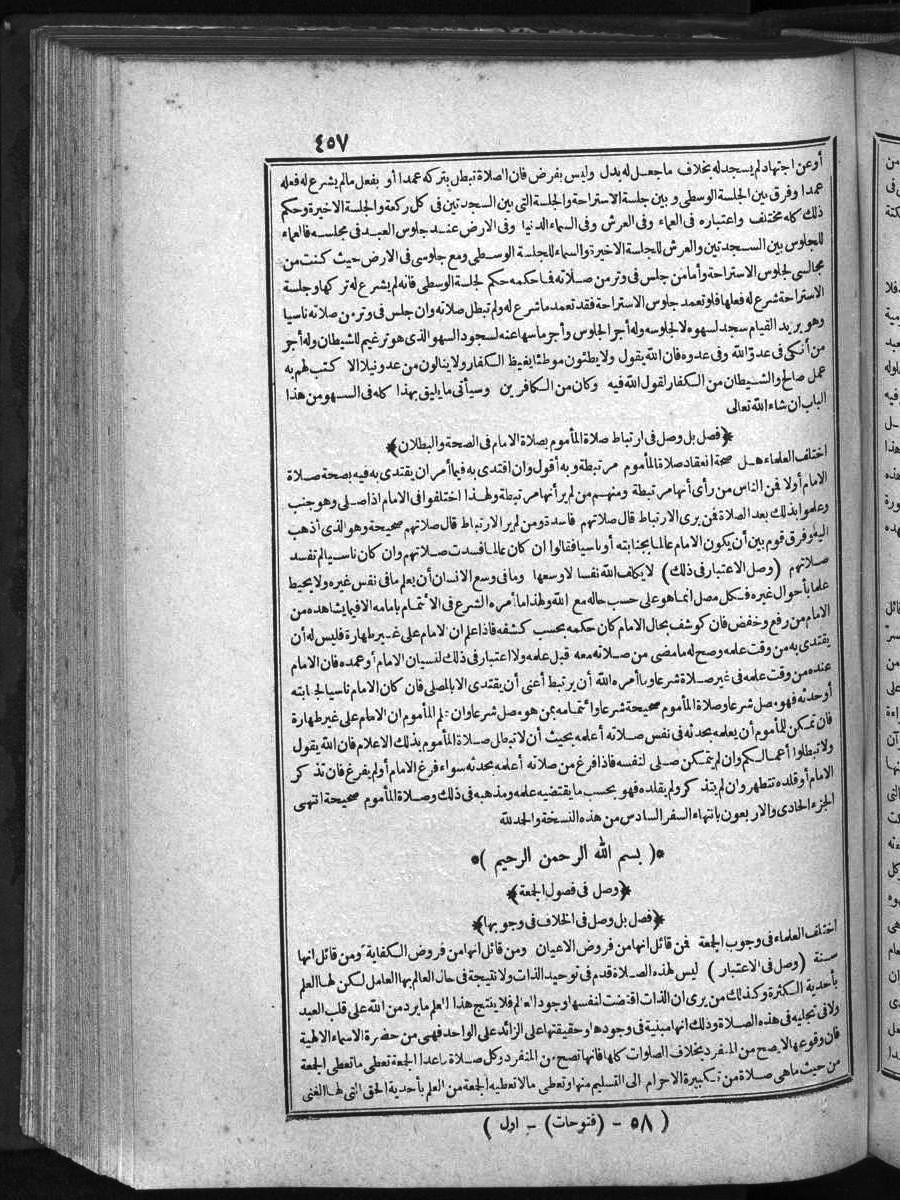 ٤٥٧
أوعن اجتهاد لم يسجد له بخلاف ماجعل له بدل وليس بفرض فان الصلاة تبطل بتركه عمدا أو بفعل مالم يشرع له فعله
عمدا وفرق بين الجلسة الوسطى وبين جلسة الاستراحة والجلسة التى بين السجدتين فى كل ركعة والجلسة الاخيرة وحكم
ذلك كله مختلف واعتباره فى العماء وفى العرش وفى السماء الدنيا وفى الارض عند جلوس العبد فى مجلسه فالعماء
للجلوس بين السجدتين والعرش للجلسة الاخيرة والسماء للجلسة الوسطى ومع جلوسى فى الارض حيث كنت من
مجالسى لجلوس الاستراحة وأما من جلس فى وتر من صلاته فما حكمه حكم الجلسة الوسطى فانه لم يشرع له تركها وجلسة
الاستراحة شرع له فعلها فلو تعمد جلوس الاستراحة فقد تعمد ماشرع له ولم تبطل صلاته وان جلس فى وتر من صلاته ناسيا
وهو يريد القيام سجد لسهوه لا لجلوسه وله أجر الجلوس وأجر ماسها عنه لسجود السهو الذى هو ترغيم للشيطان وله أجر
من أنكى فى عدو الله وفى عدوه فان الله يقول ولا يطئون موطئا يغيظ الكفار ولا ينالون من عدو نيلا الا كتب لهم به
عمل صالح والشيطان من الكفار لقول الله فيه وكان من الكافرين وسيأتى مايليق بهذا كله فى السهو من هذا
الباب ان شاء الله تعالى
﴿فصل بل وصل فى ارتباط صلاة المأموم بصلاة الامام فى الصحة والبطلان﴾
اختلف العلماء هل صحة انعقاد صلاة المأموم مرتبطة وبه أقول وان اقتدى به فيما أمر ان يقتدى به فيه بصحة صلاة
الامام أولا فمن الناس من رأى أنها مرتبطة ومنهم من لم ير أنها مرتبطة ولهذا اختلفوا فى الامام اذا صلى وهو جنب
وعلموا بذلك بعد الصلاة فمن يرى الارتباط قال صلاتهم فاسدة ومن لم ير الارتباط قال صلاتهم صحيحة وهو الذى أذهب
اليه وفرق قوم بين أن يكون الامام عالما بجنابته أو ناسيا فقالوا ان كان عالما فسدت صلاتهم وان كان ناسيا لم تفسد
صلاتهم (وصل الاعتبار فى ذلك) لا يكلف الله نفسا الا وسعها وما فى وسع الانسان أن يعلم ما فى نفس غيره ولا يحيط
علما بأحوال غيره فكل مصل انما هو على حسب حاله مع الله ولهذا ما أمره الشرع فى الائتمام بامامه الا فيما يشاهده من
الامام من رفع وخفض فان كوشف بحال الامام كان حكمه بحسب كشفه فاذا علم ان الامام على غير طهارة فليس له أن
يقتدى به من وقت علمه وصح له مامضى من صلاته معه قبل علمه ولا اعتبار فى ذلك لنسيان الامام أو عمده فان الامام
عنده من وقت علمه فى غير صلاة شرعا وما أمره الله أن يرتبط أعنى أن يقتدى الا بالمصلى فان كان الامام ناسيا لجنابته
أو حدثه فهو مصل شرعا وصلاة المأموم صحيحة شرعا وائتمامه بمن هو مصل شرعا وان علم المأموم ان الامام على غير طهارة
فان تمكن للمأموم أن يعلمه بحدثه فى نفس صلاته أعلمه بحيث أن لا تبطل صلاة المأموم بذلك الاعلام فان الله يقول
ولا تبطلوا أعمالكم وان لم يتمكن صلى لنفسه فاذا فرغ من صلاته أعلمه بحدثه سواء فرغ الامام أو لم يفرغ فان تذكر
الامام أو قلده تتطهر وان لم يتذكر ولم يقلده فهو بحسب ما يقتضيه علمه ومذهبه فى ذلك وصلاة المأموم صحيحة انتهى
الجزء الحادى والاربعون بانتهاء السفر السادس من هذه النسخة والحمد لله
*( بسم الله الرحمن الرحيم )*
﴿وصل فى فصول الجمعة﴾
﴿فصل بل وصل فى الخلاف فى وجوبها﴾
اختلف العلماء فى وجوب الجمعة فمن قائل انها من فروض الاعيان ومن قائل انها من فروض الكفاية ومن قائل انها
سنة (وصل فى الاعتبار) ليس لهذه الصلاة قدم فى توحيد الذات ولا نتيجة فى حال العالم بها العامل لكن لها العلم
بأحدية الكثرة وكذلك من يرى ان الذات اقتضت لنفسها وجود العالم فلا ينتج هذا العلم ما يرد من الله على قلب العبد
ولا فى تجليه فى هذه الصلاة وذلك انها مبنية فى وجودها وحقيقتها على الزائد على الواحد فهى من حضرة الاسماء الالهية
فان وقوعها لا يصح من المنفرد بخلاف الصلوات كلها فانها تصح من المنفرد وكل صلاة ماعدا الجمعة تعطى ما تعطى الجمعة
من حيث ماهى صلاة من تكبيرة الاحرام الى التسليم منها وتعطى مالا تعطيه الجمعة من العلم بأحدية الحق التى لها الغنى
( ٥٨ - (فتوحات) - اول )